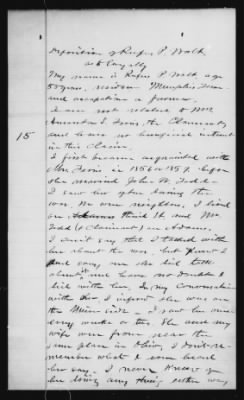 Deposition of Rufus P. Walt
My name is Rufus P. Walt age
55 years, residence Memphis Tenn
and occupation a farmer.
I am not related to Mrs
Amanda E. the Claimant,
and have no beneficial interest
in this Claim.
15
I first became acquainted with
Mrs in 1856 or 1857. before
she married John W. Todd.
I saw her often during the
war. We were neighbors, I lived
on and Mrs
Todd (Claimant) on Adams.
I can't say that I talked with
her about the war, but
say she did talk
about it and have no doubt I
did with her. In my conversation
with her, I infer she was on
the Union side. I saw her once
every week or two. She and my
wife were from near the
same place in Ohio, I don't re-
member what I ever heard
her say. I never knew of
her doing any thing either way